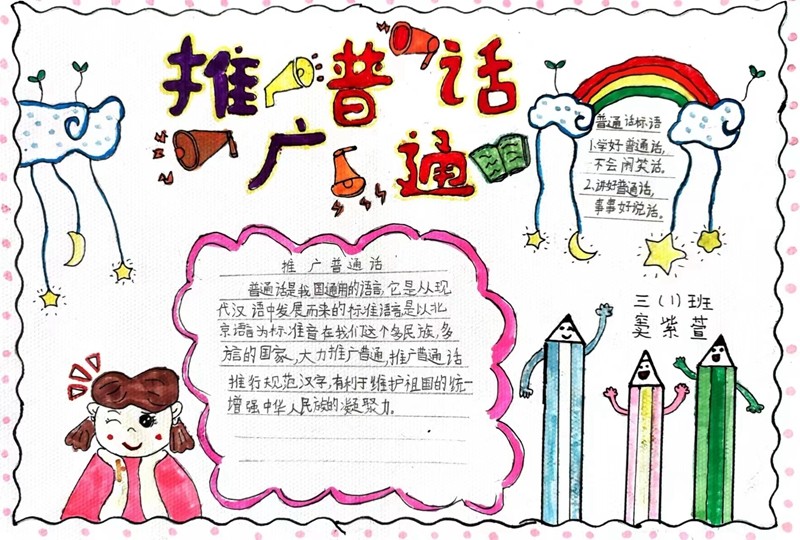 推广普通话
普通话标语
1.学好普通话,
不会闹笑话。
2.讲好普通话,
事事好说话。
推广普通话
普通话是我国通用的语言,它是从现
代汉语中发展而来的标准语言是以北
京语言为标准音在我们这个多民族,多
方言的国家,大力推广普通,推广普通话
推行规范汉字,有利于维护祖国的统一
增强中华人民族的凝聚力。
三(1)班
窦紫萱